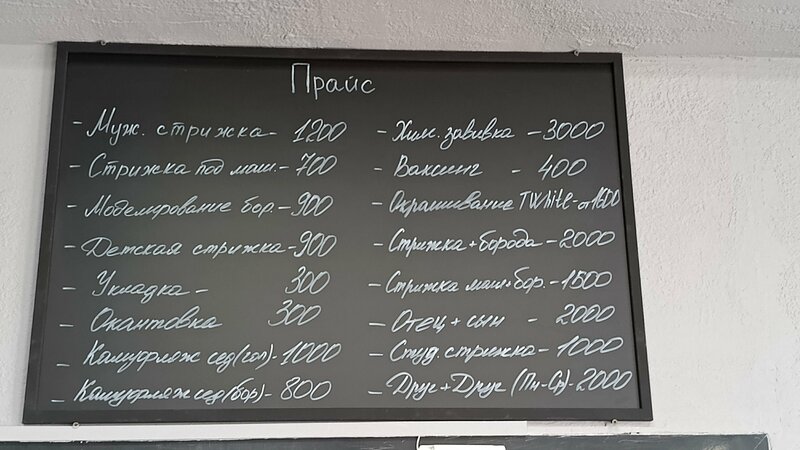 Прайс
- Муж. стрижка - 1200
- Стрижка под маш. - 700
- Моделирование бор. - 900
- Детская стрижка - 900
- Укладка - 300
- Окантовка 300
- Камуфляж сед(гол) - 1000
- Камуфляж сед(бор) - 800
- Хим. завивка - 3000
- Ваксинг - 400
- Окрашивание TWhite - от
- Стрижка + борода - 2000
- Стрижка маш + бор. - 1500
- Отец + сын - 2000
- Студ. стрижка - 1000
- Друг + Друг (Пн-Ср) - 2000